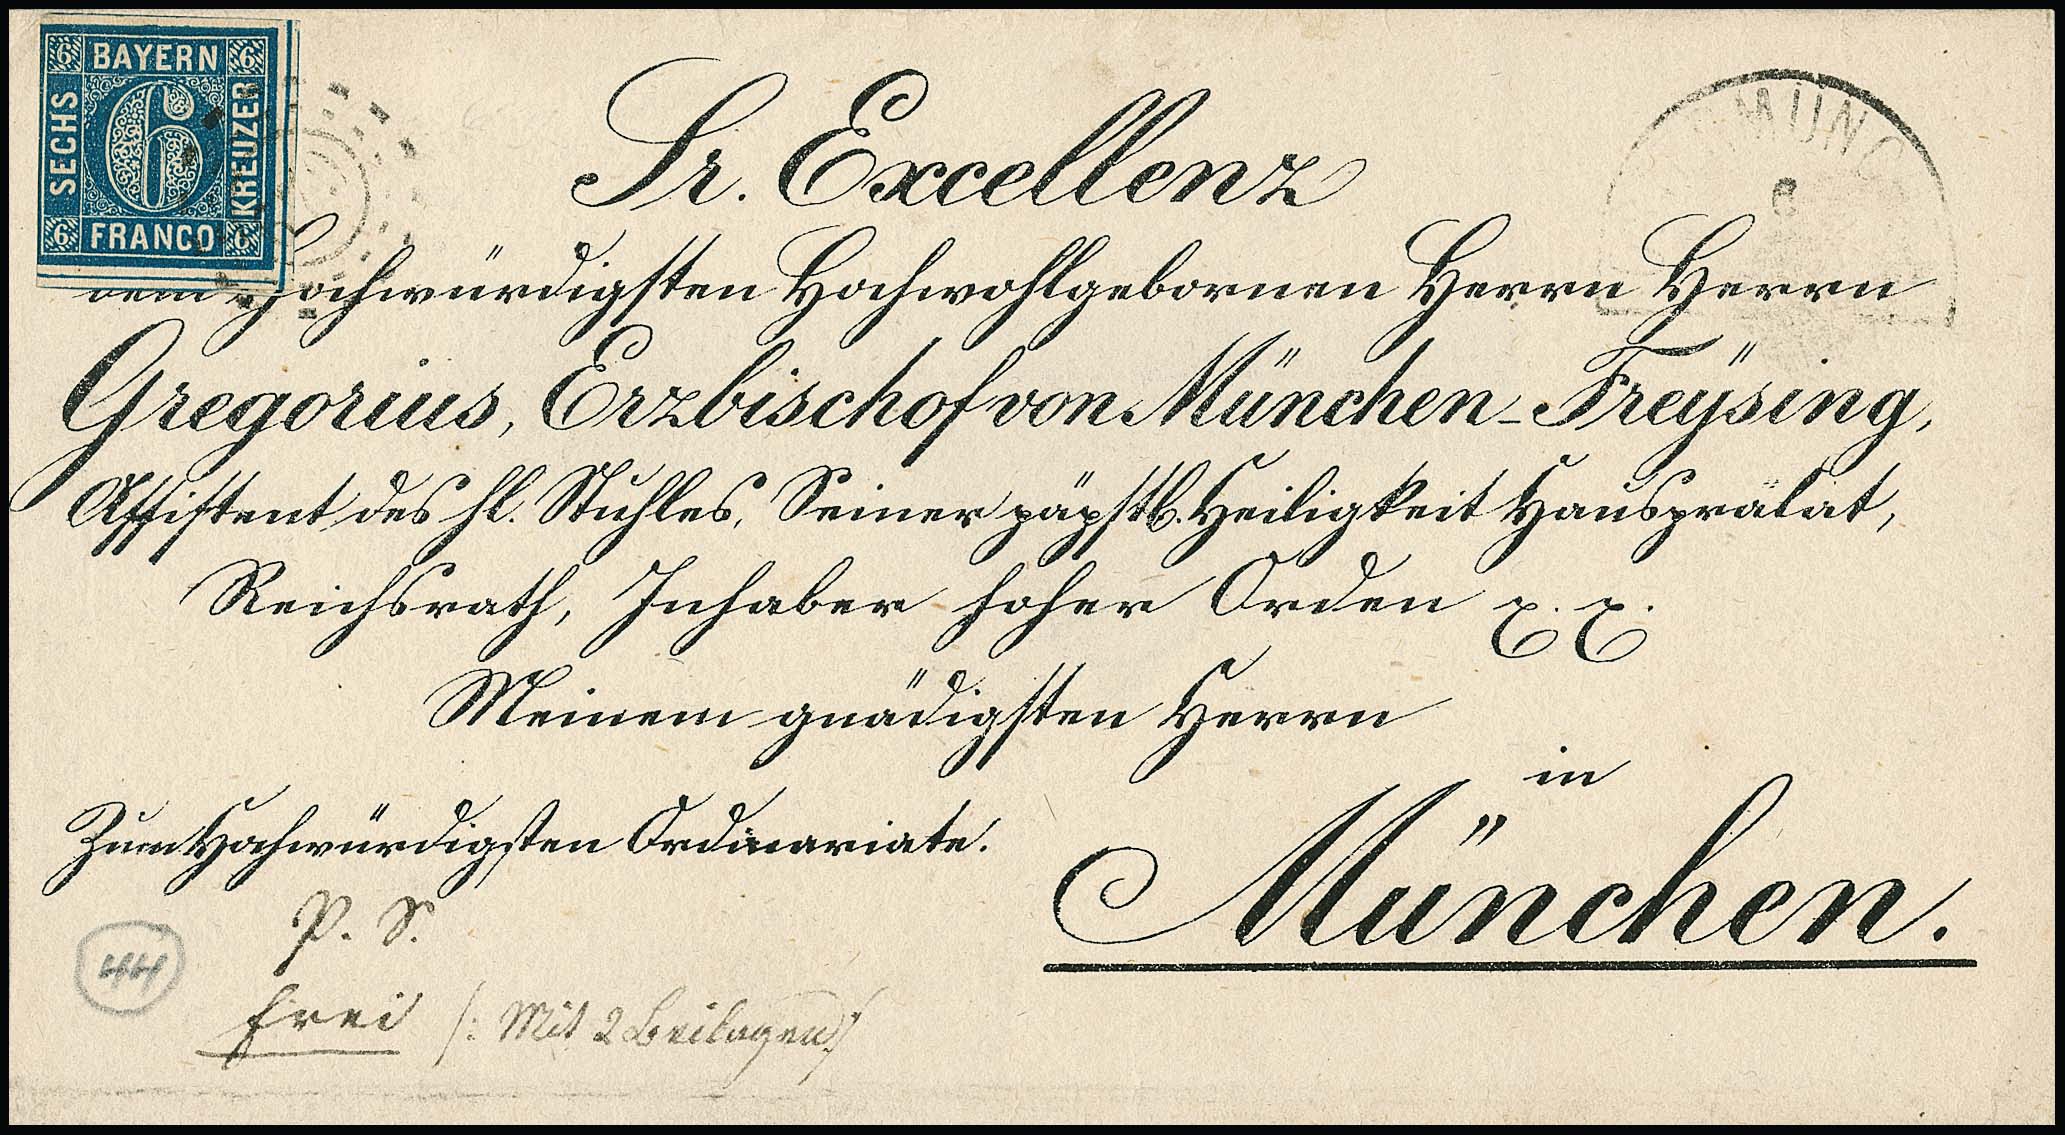 BAYERN
SECHS
KREUZER
FRANCO
6 6 6 6
6
MÜNC
Sr. Excellenz
dem Hochwürdigsten Hochwohlgebornen Herrn Herrn
Gregorius, Erzbischof von München-Freÿsing,
Assistent des hl. Stuhles, Seiner päpstl. Heiligkeit Hausprälat,
Reichsrath, Inhaber hoher Orden
Meinem gnädigsten Herrn
in
München.
Zum Hochwürdigsten Ordinariate.
P. S.
44
frei /: Mit 2 Beilagen :/